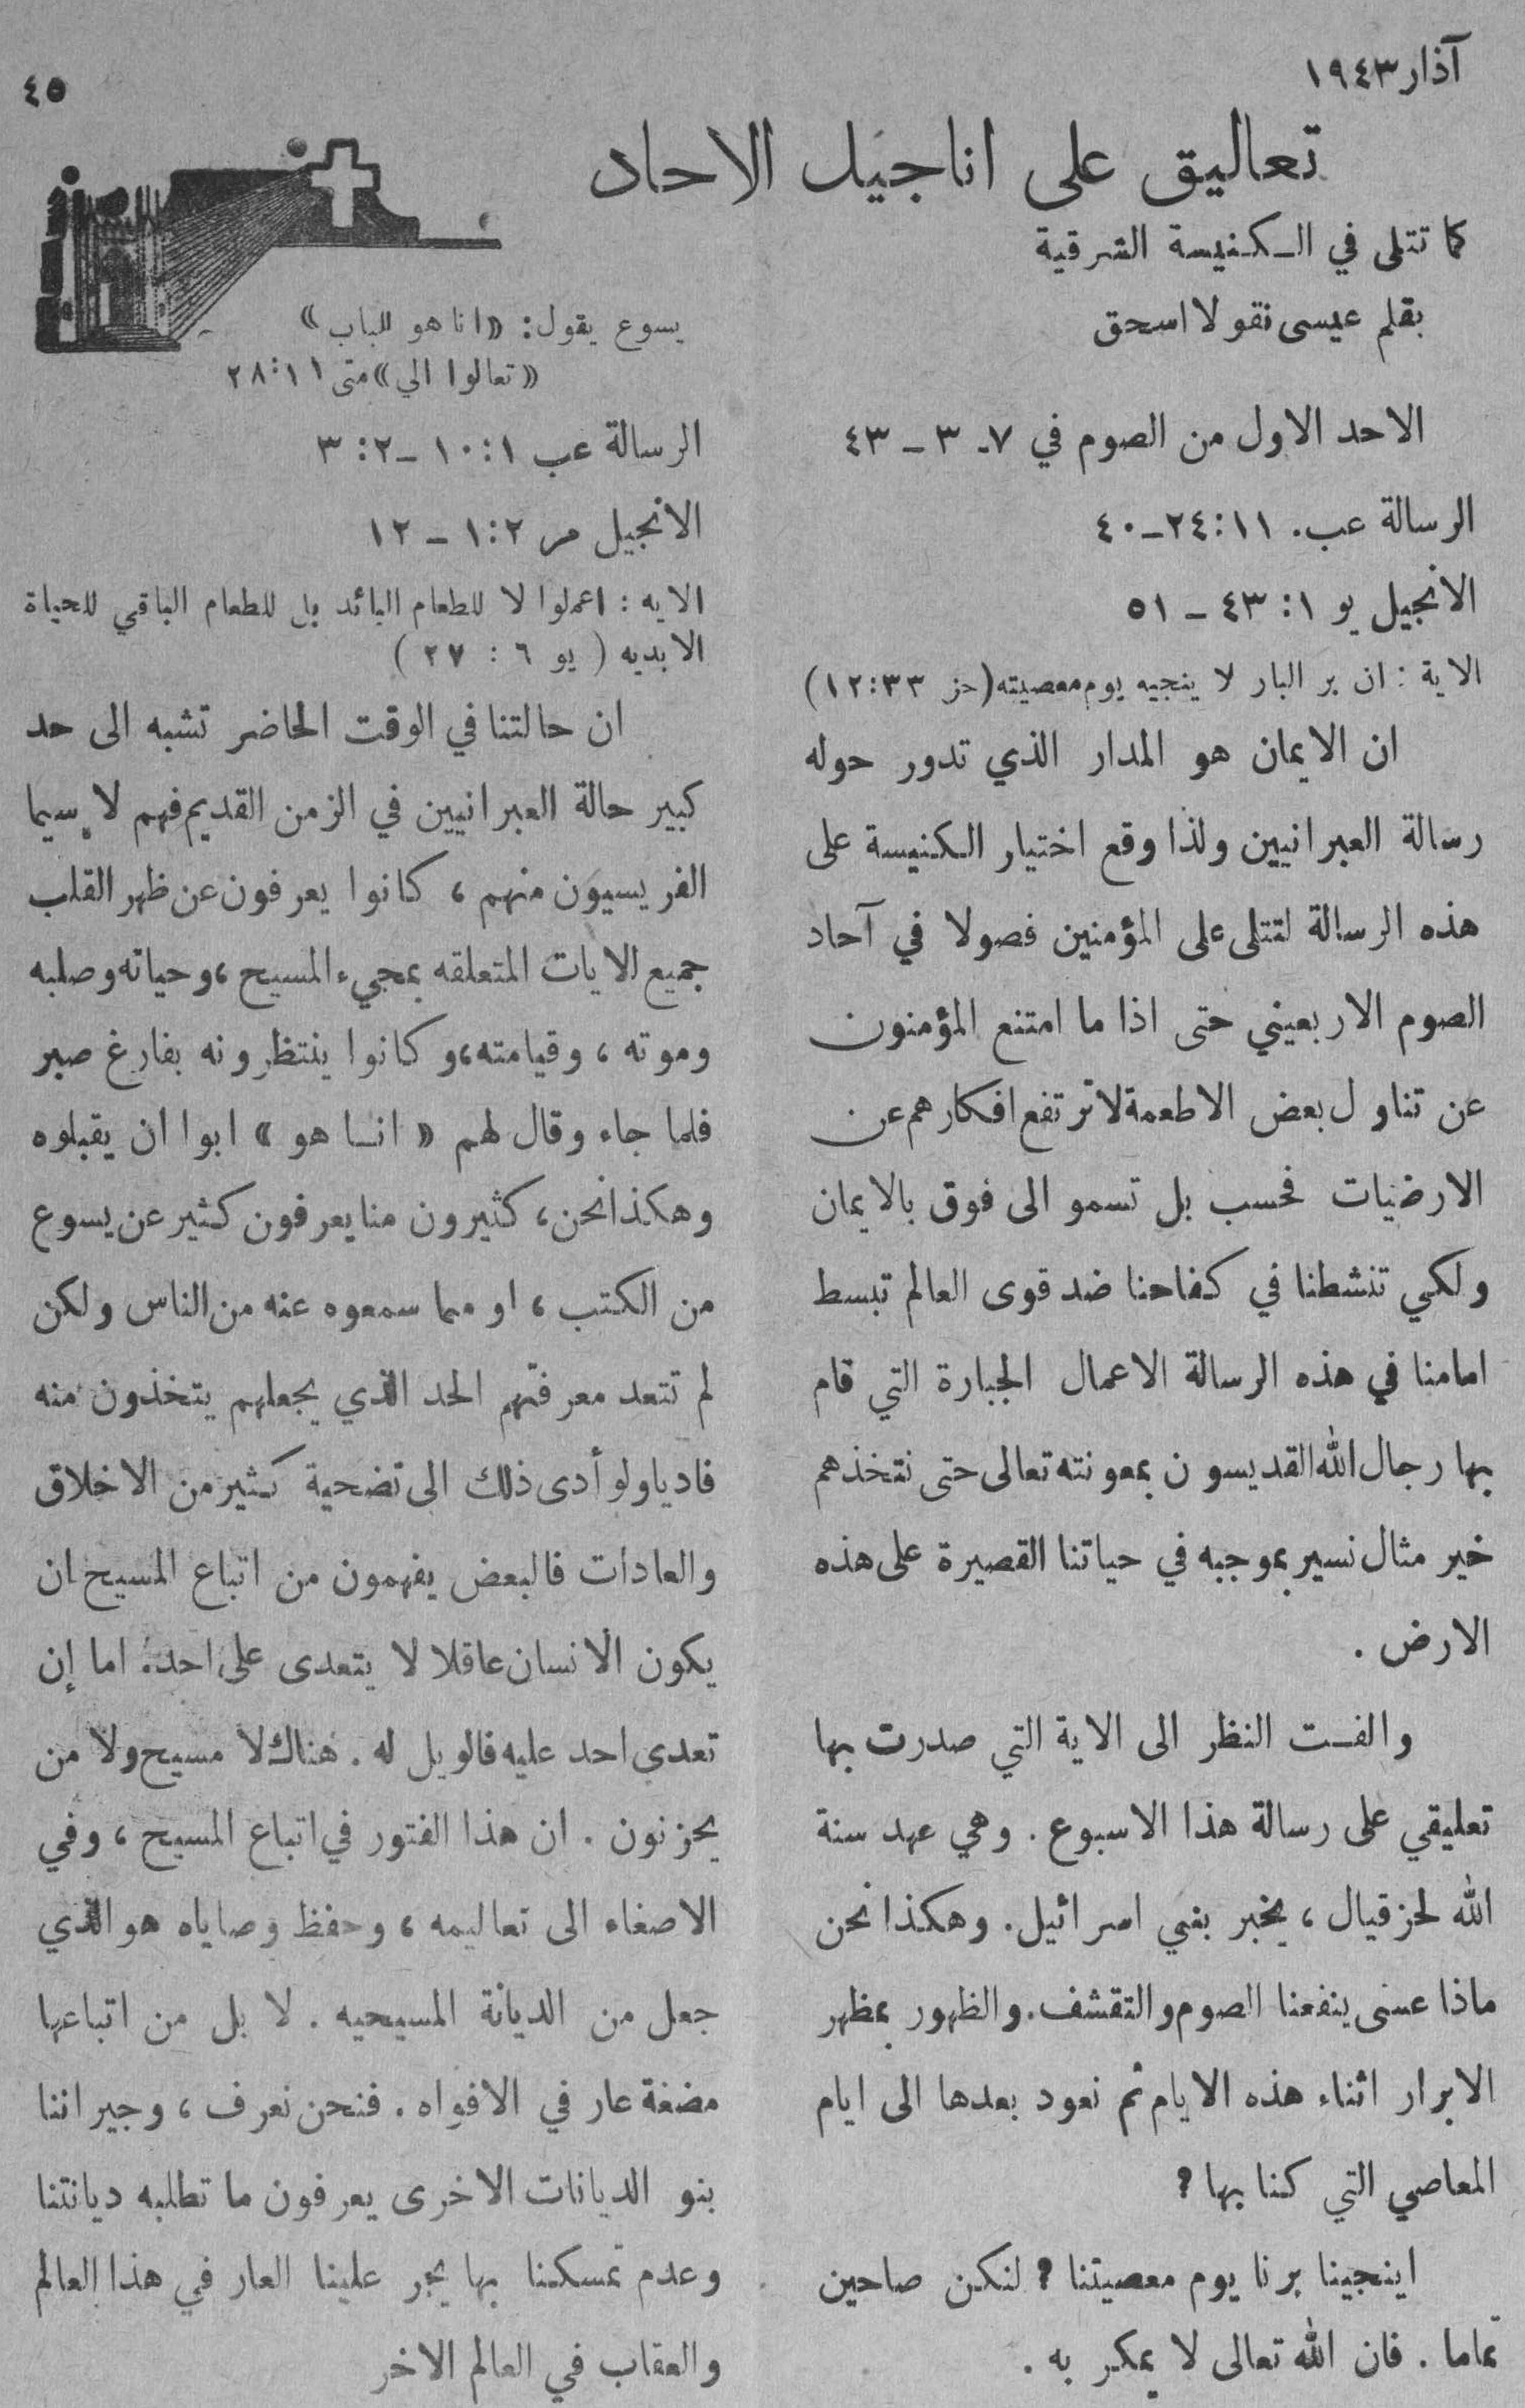 آذار ١٩٤٣
٤٥
تعاليق على اناجيل الاحاد
كما تتلى في الكنيسة الشرقية
بقلم عيسى نقولا اسحق
الاحد الاول من الصوم في ٧ـ ٣ ـ ٤٣
الرسالة عب. ١١:٢٤ـ٤٠
الانجيل يو ١: ٤٣ ـ ٥١
الاية : ان بر البار لا ينجيه يوم معصيته (حز ٣٣:١٢)
ان الايمان هو المدار الذي تدور حوله
رسالة العبرانيين ولذا وقع اختيار الكنيسة على
هذه الرسالة لتتلى على المؤمنين فصولا في آحاد
الصوم الاربعيني حتى اذا ما امتنع المؤمنون
عن تناول بعض الاطعمة لا ترتفع افكارهم عن
الارضيات فحسب بل تسمو الى فوق بالايمان
ولكي تنشطنا في كفاحنا ضد قوى العالم تبسط
امامنا في هذه الرسالة الاعمال الجبارة التي قام
بها رجال الله القديسون بمعونته تعالى حتى نتخذهم
خير مثال نسير بموجبه في حياتنا القصيرة على هذه
الارض .
والفت النظر الى الاية التي صدرت بها
تعليقي على رسالة هذا الاسبوع . وهي عهد سنة
الله لحزقيال ، يخبر بني اسرائيل. وهكذا نحن
ماذا عسى ينفعنا الصوم والتقشف. والظهور بمظهر
الابرار اثناء هذه الايام ثم نعود بعدها الى ايام
المعاصي التي كنا بها ؟
اينجينا برنا يوم معصيتنا ؟ لنكن صاحين
تماما . فان الله تعالى لا يمكر به .
يسوع يقول: «انا هو الباب»
«تعالوا الي» متى ١١:٢٨
الرسالة عب ١:١٠ ـ٢: ٣
الانجيل مر ٢:١ ـ ١٢
الايه : اعملوا لا للطعام البائد بل للطعام الباقي للحياة
الابديه ( يو ٦ : ٢٧ )
ان حالتنا في الوقت الحاضر تشبه الى حد
كبير حالة العبرانيين في الزمن القديم فهم لا سيما
الفريسيون منهم ، كانوا يعرفون عن ظهر القلب
جميع الايات المتعلقه بمجيء المسيح ، وحياته وصلبه
وموته ، وقيامته، وكانوا ينتظرونه بفارغ صبر
فلما جاء وقال لهم « انا هو » ابوا ان يقبلوه
وهكذا نحن ، كثيرون منا يعرفون كثير عن يسوع
من الكتب ، او مما سمعوه عنه من الناس ولكن
لم تتعد معرفتهم الحد الذي يجعلهم يتخذون منه
فاديا ولو أدى ذلك الى تضحية كثير من الاخلاق
والعادات فالبعض يفهمون من اتباع المسيح ان
يكون الانسان عاقلا لا يتعدى على احد. اما إن
تعدى احد عليه فالويل له . هناك لا مسيح ولا من
يحزنون . ان هذا الفتور في اتباع المسيح ، وفي
الاصغاء الى تعاليمه ، وحفظ وصاياه هو الذي
جعل من الديانة المسيحيه . لا بل من اتباعها
مضغة عار في الافواه . فنحن نعرف ، وجيراننا
بنو الديانات الاخرى يعرفون ما تطلبه ديانتنا
وعدم تمسكنا بها يجر علينا العار في هذا العالم
والعقاب في العالم الاخر